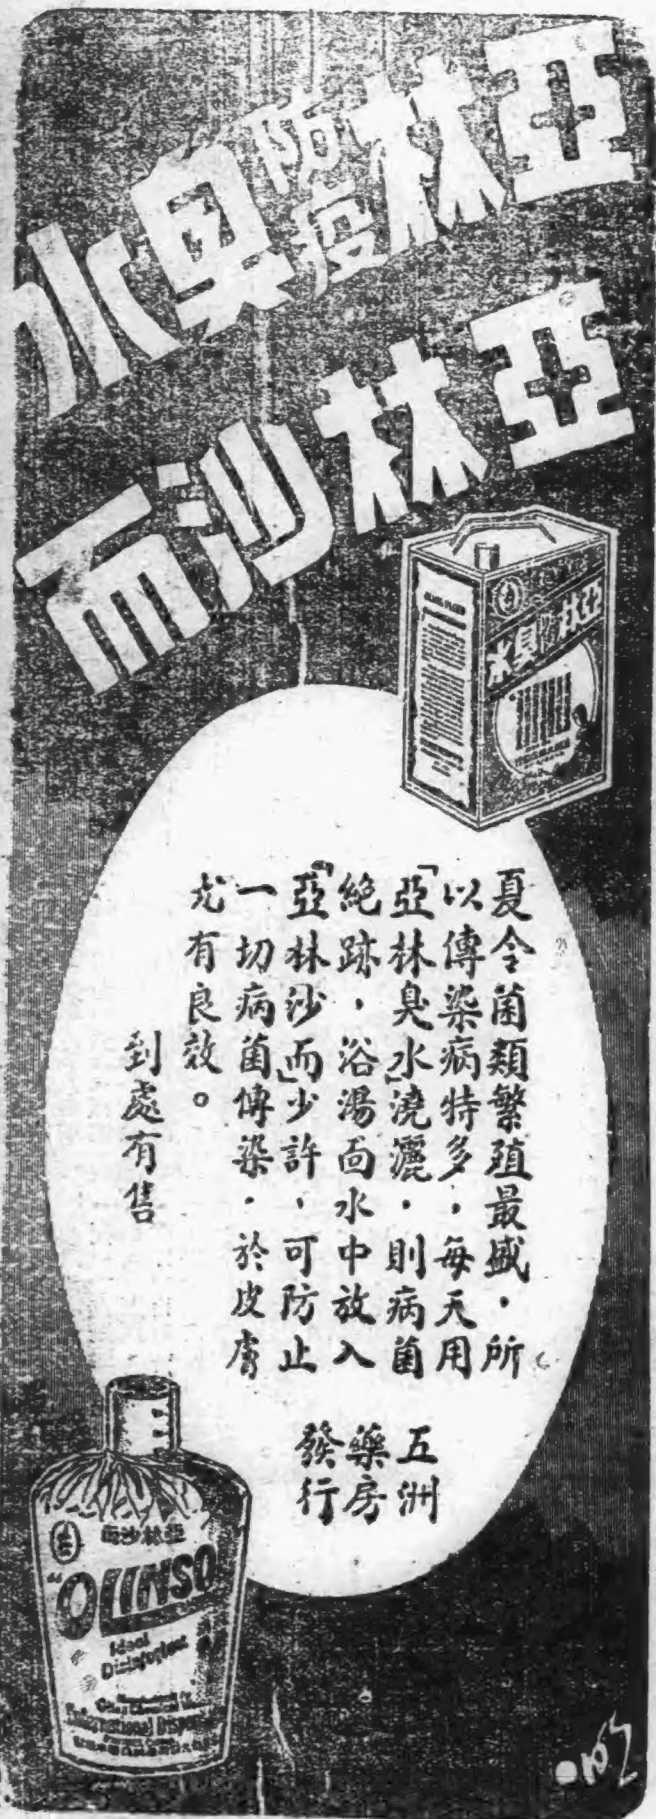 亞林防疫臭水
亞林沙而
亞林防疫臭水
夏令菌類繁殖最盛，所
以傳染病特多，每天用
「亞林臭水」澆灑，則病菌
絕跡，浴湯面水中放入
「亞林沙而」少許，可防止
一切病菌傳染，於皮膚
尤有良效。
到處有售
五洲
藥房
發行
亞林沙而
"OLINSO
Ideal
Disinfectant
International Dispensary